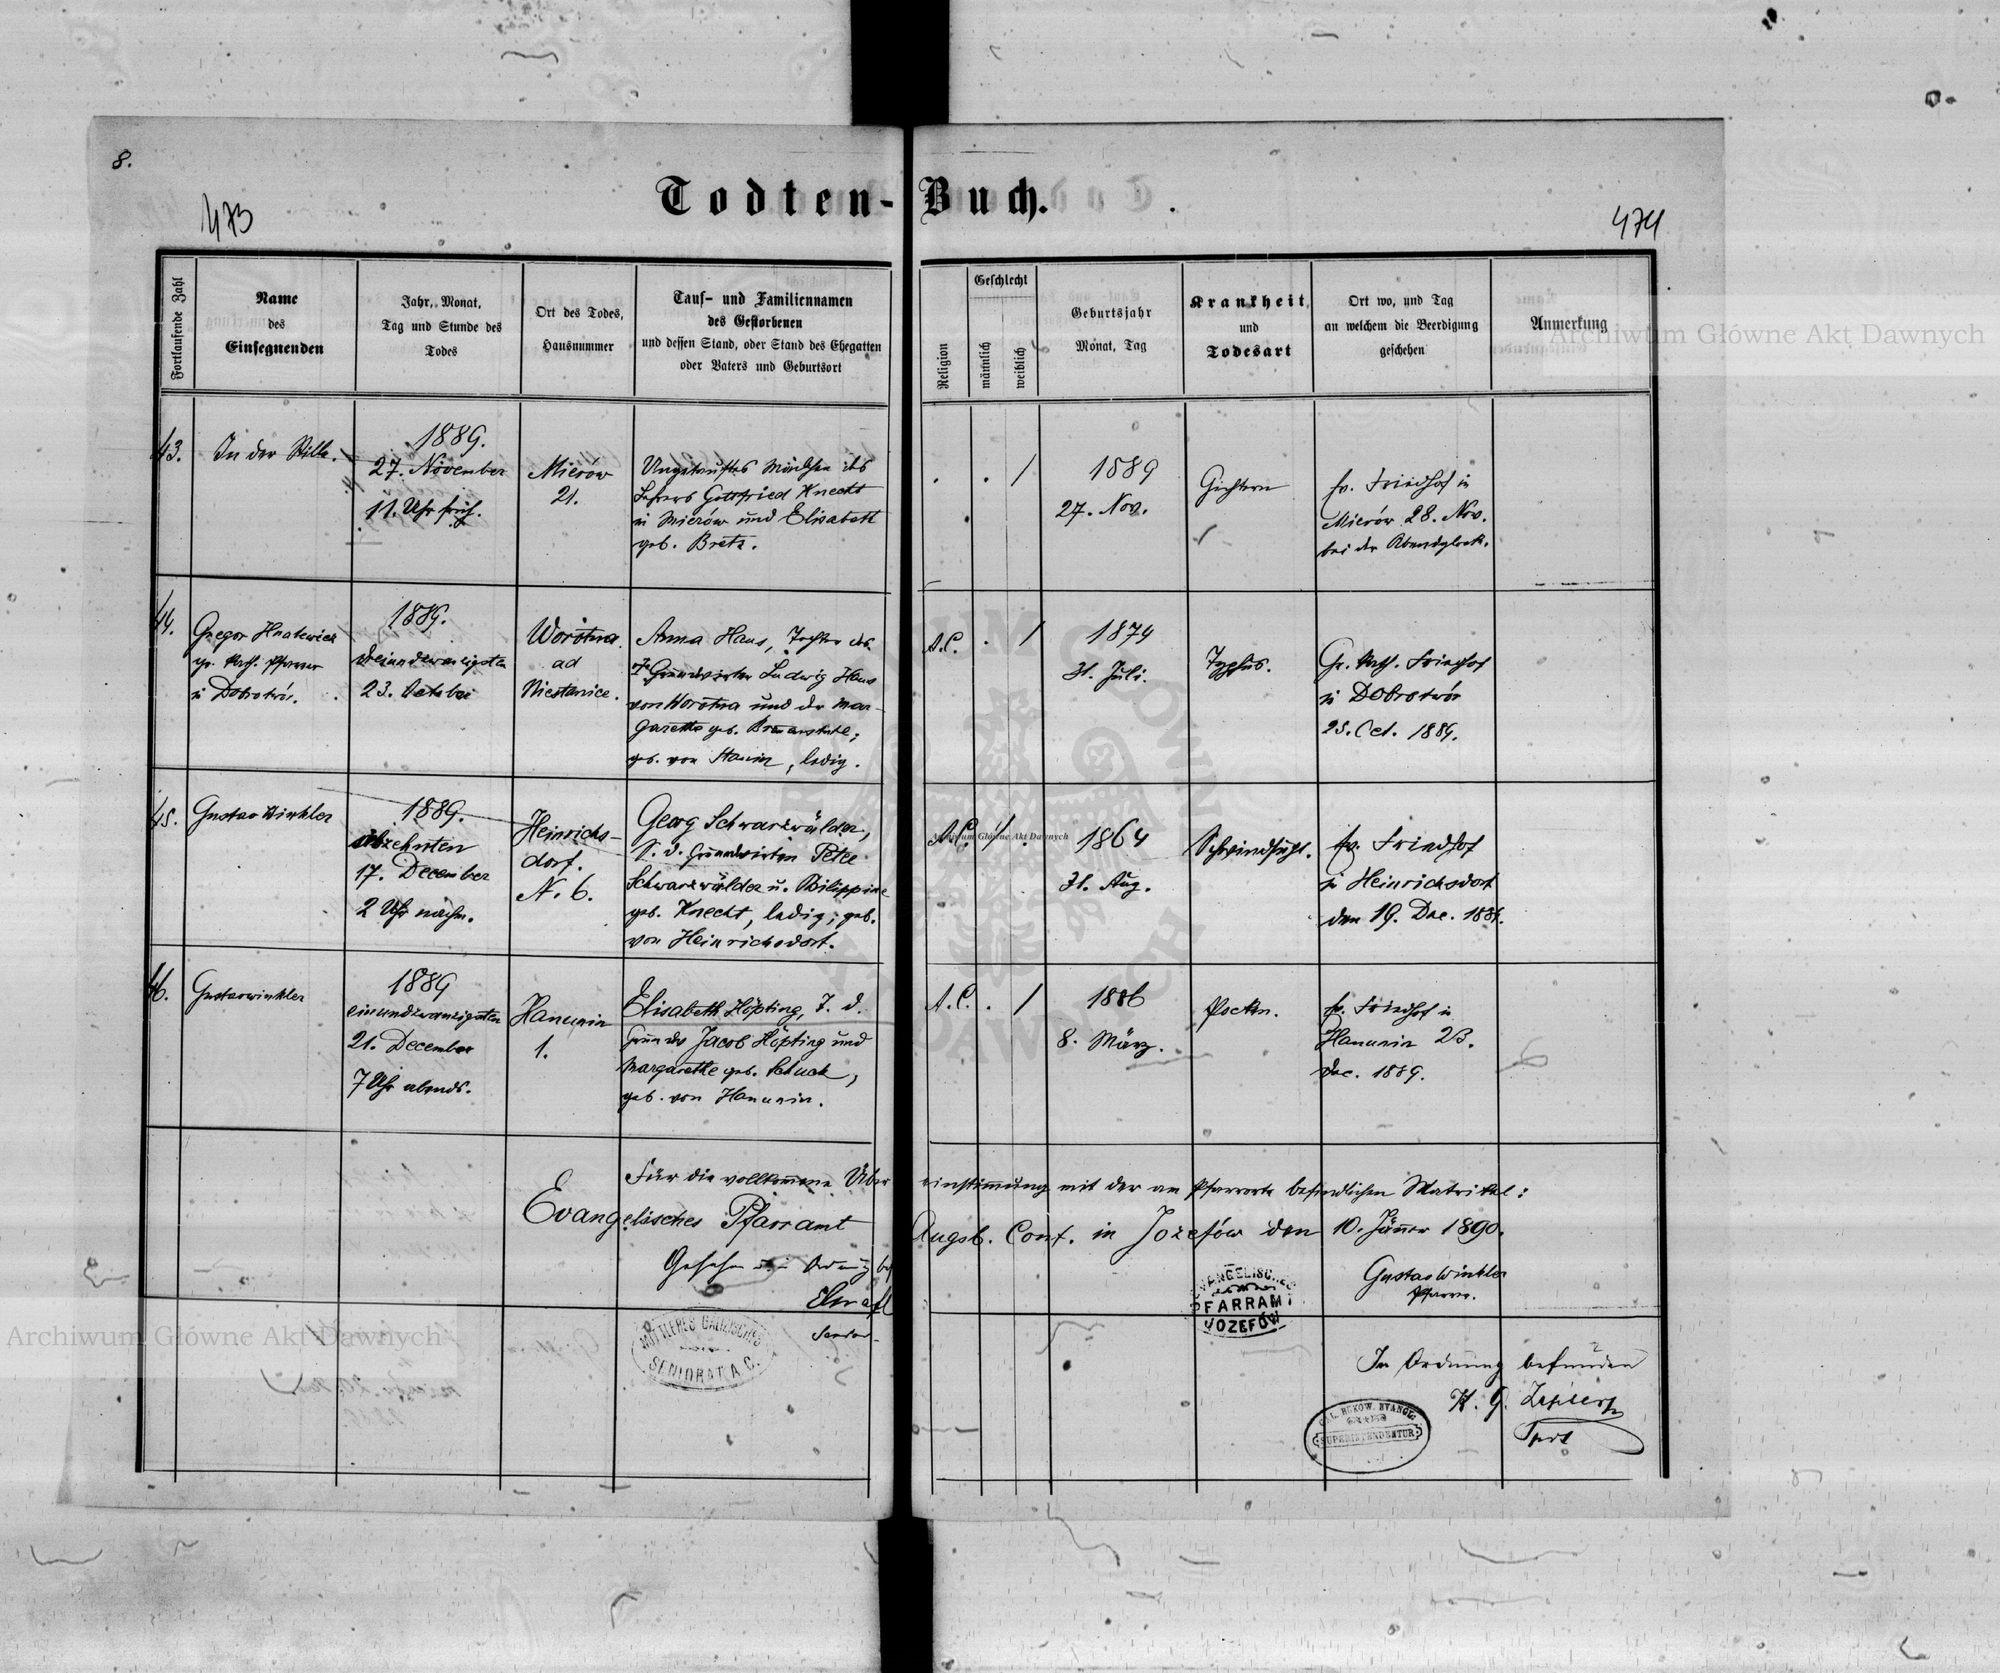 8.
Todten-Buch.
473
474
Fortlaufende Zahl
Name
des
Einsegnenden
Jahr, Monat,
Tag und Stunde des
Todes
Ort des Todes,
Hausnummer
Tauf- und Familiennamen
des Gestorbenen
und dessen Stand, oder Stand des Ehegatten
oder Vaters und Geburtsort
Religion
Geschlecht
männlich
weiblich
Geburtsjahr
Monat, Tag
Krankheit
und
Todesart
Ort wo, und Tag
an welchem die Beerdigung
geschehen
Anmerkung
Archiwum Główne Akt Dawnych
43.
In der Stille.
1889.
27. November
11. Uhr früh.
Mierów
21.
Ungetauftes Mädchen des
Lehrers Gottfried Knecht
in Mierów und Elisabeth
geb. Bretz.
. . /
1889
27. Nov.
Gichtern
ev. Friedhof in
Mierów 28. Nov.
bei der Abendglock.
44.
Gregor Hnatewicz
gr. kath. Pfarrer
in Dobrotwór.
1889.
dreiundzwanzigsten
23. October
Worotna
ad
Niestanice.
Anna Haus, Tochter des
Grundwirten Ludwig Haus
von Worotna und der Mar-
garethe geb.
geb. von Hanunin, ledig.
A.C. . /
1874
31. Juli.
Typhus.
Gr. kath. Friedhof
in Dobrotwór
25. Oct. 1889.
45.
Gustav Winkler
1889.
siebzehnten
17. December
2 Uhr nachm.
Heinrichs-
dorf.
N. 6.
Georg Schwarzwälder,
S. d. Grundwirten Peter
Schwarzwälder u. Philippine
geb. Knecht, ledig; geb.
von Heinrichsdorf.
A.C. / .
Archiwum Główne Akt Dawnych
1864
31. Aug.
Schwindsucht.
ev. Friedhof
in Heinrichsdorf
den 19. Dec. 1889.
46.
Gustav Winkler
1889
einundzwanzigsten
21. December
7 Uhr abends.
Hanunin
1.
Elisabeth Höpting, T. d.
Grundw Jacob Höpting und
Margarethe geb. Schuck,
geb. von Hanunin.
A.C. . /
1886
8. März.
Pocken.
ev. Friedhof in
Hanunin 23.
Dec. 1889.
Für die vollkommene Übereinstimmung mit der am Pfarrorte befindlichen Matrikel:
Evangelisches Pfarramt Augsb. Conf. in Józefów den 10. Jänner 1890.
Gustav Winkler
Pfarrer.
EVANGELISCHES
PFARRAMT
JOZEFÓW
Gesehen und in Ordnung bef
Senior
MITTLERES GALIZISCHES
SENIORAT A. C.
Archiwum Główne Akt Dawnych
In Ordnung befunden
GAL. BUKOW. EVANGEL.
SUPERINTENDENTUR